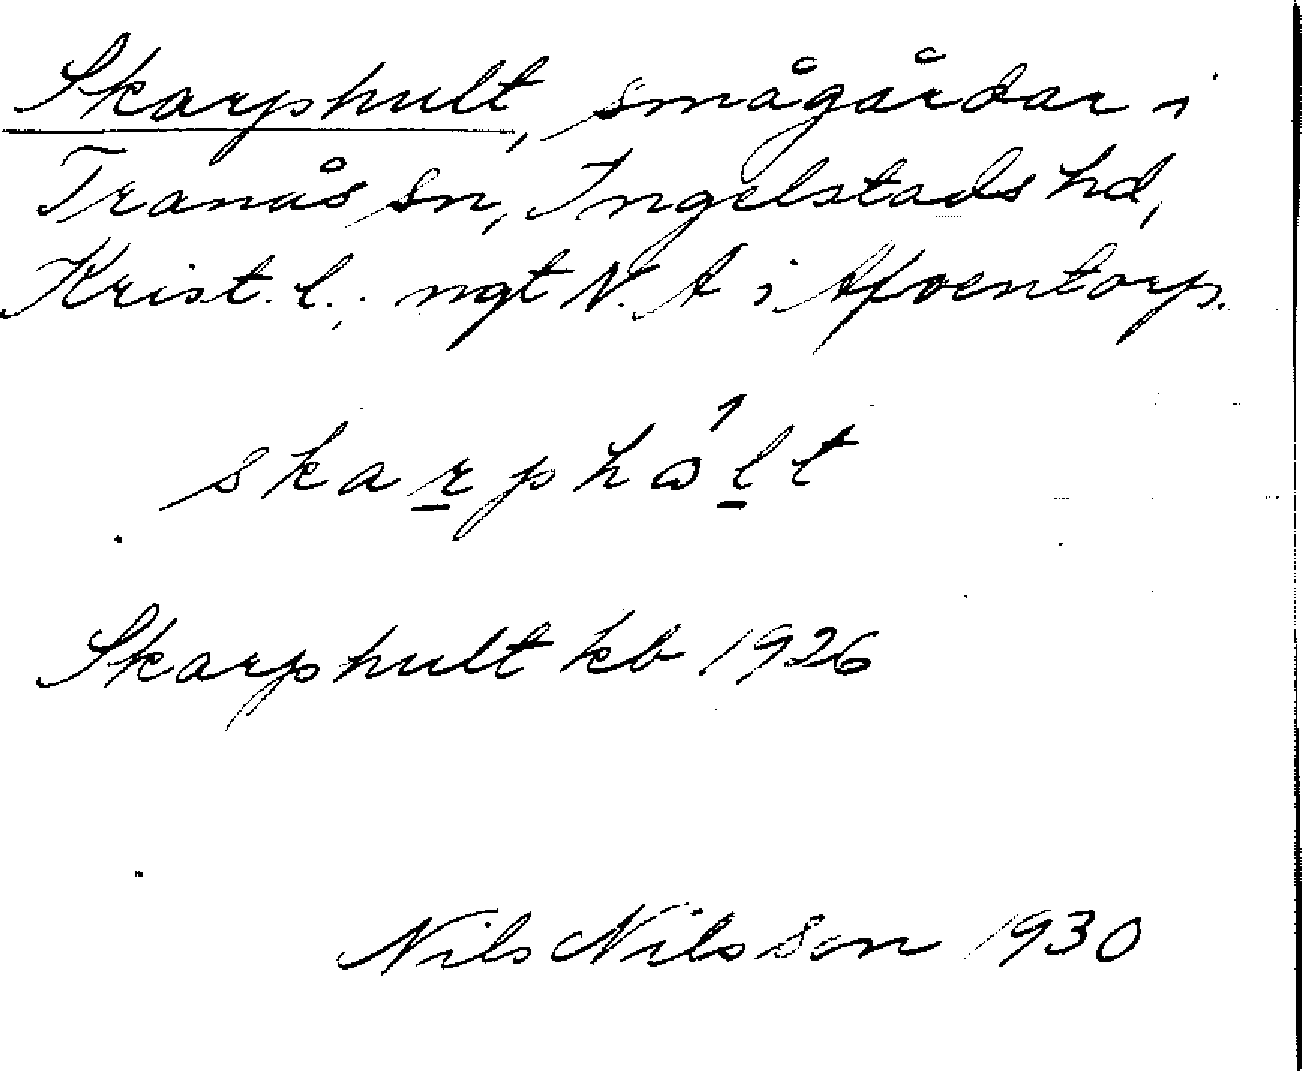 Skarphult, smågårdar i
Tranås sn, Ingelstads hd,
Krist. l. ngt N. A i
skarphωlt
Skarphult kb 1926
Nils Nilsson 1930